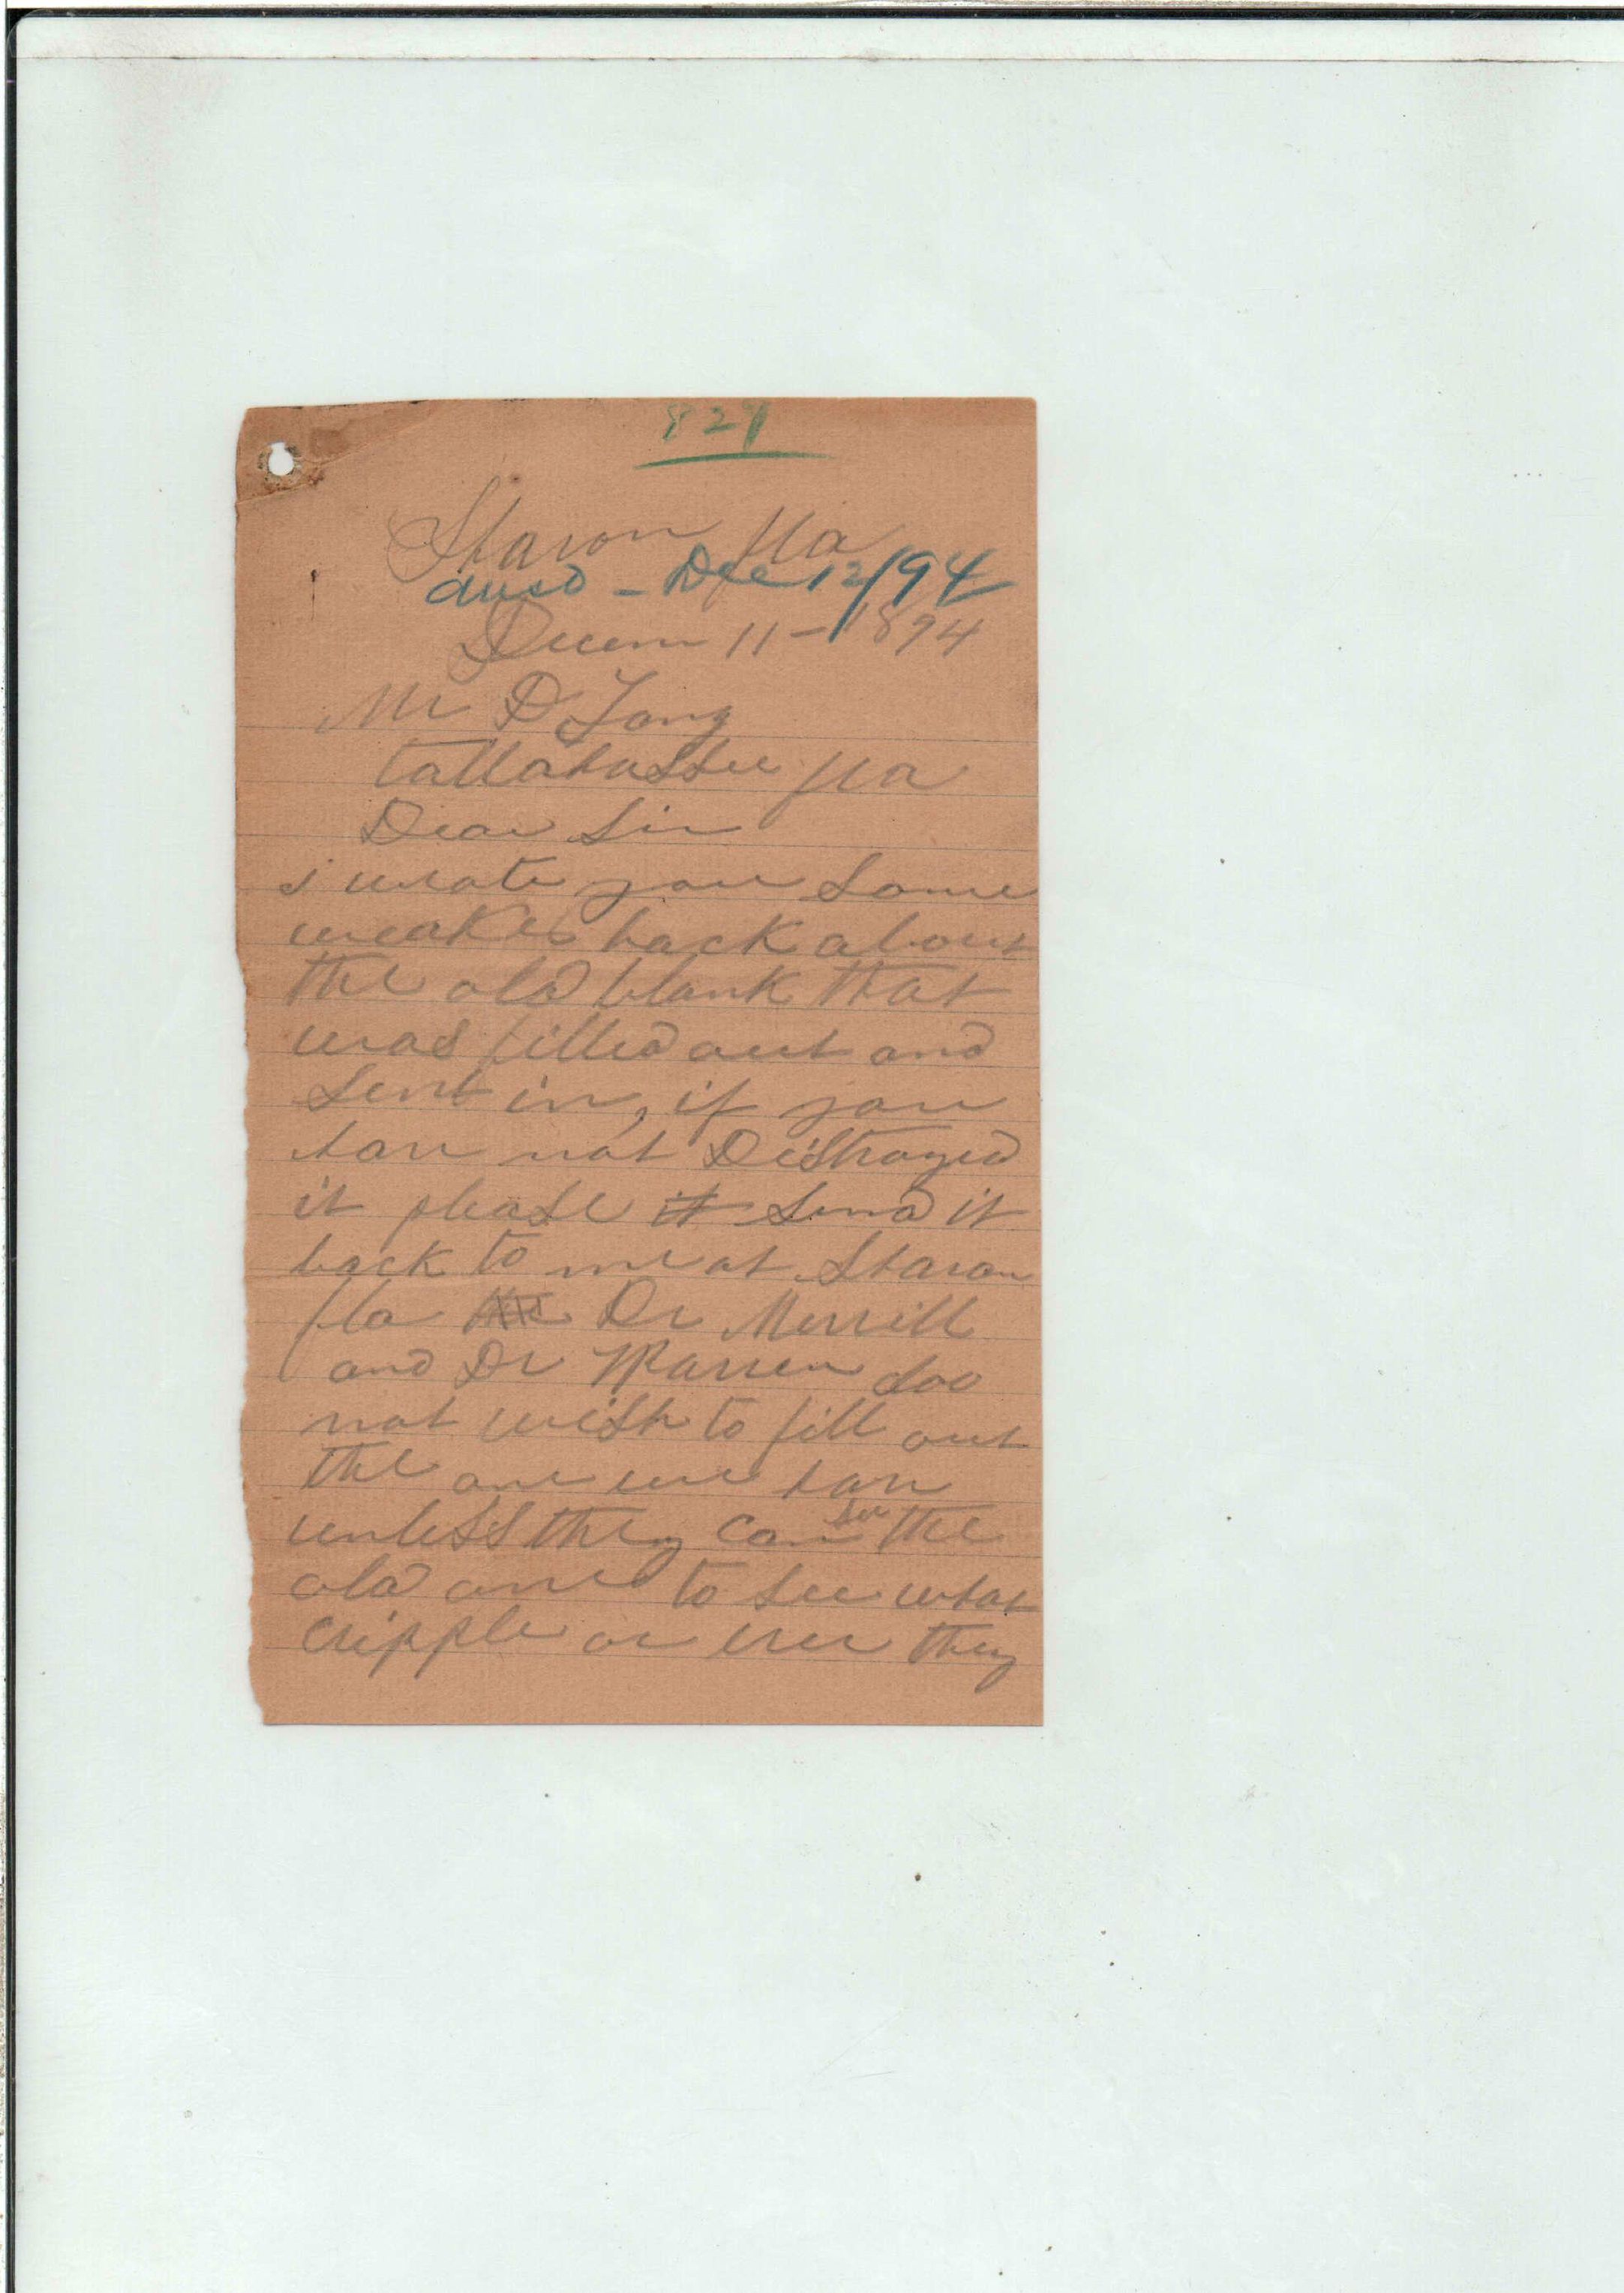 827
Sharon fla
ansd - Dec 12/94
Decem 11 - 1894
Mr D Lang
tallahassee fla
Dear Sir
i wrote you Some
weakes back about
the old blank that
was filled out and
Sent in, if you
hav not Distroyed
it please it Send it
back to me at Sharon
fla the Dr Merrill
and Dr Warren doo
not wish to fill out
the one we hav
unless they can See the
old one to See what
cripple or ever they